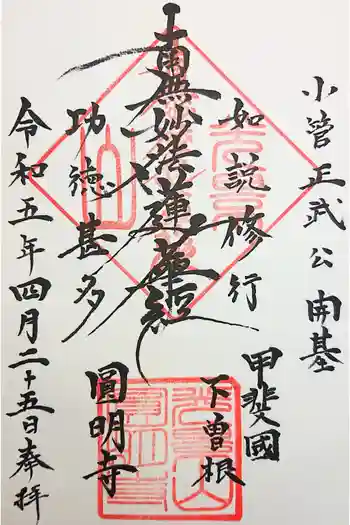 小管正武公開基
如説修行
南無妙法蓮華経
功徳甚多
甲斐國
下曽根
圓明寺
令和五年四月二十五日奉拝